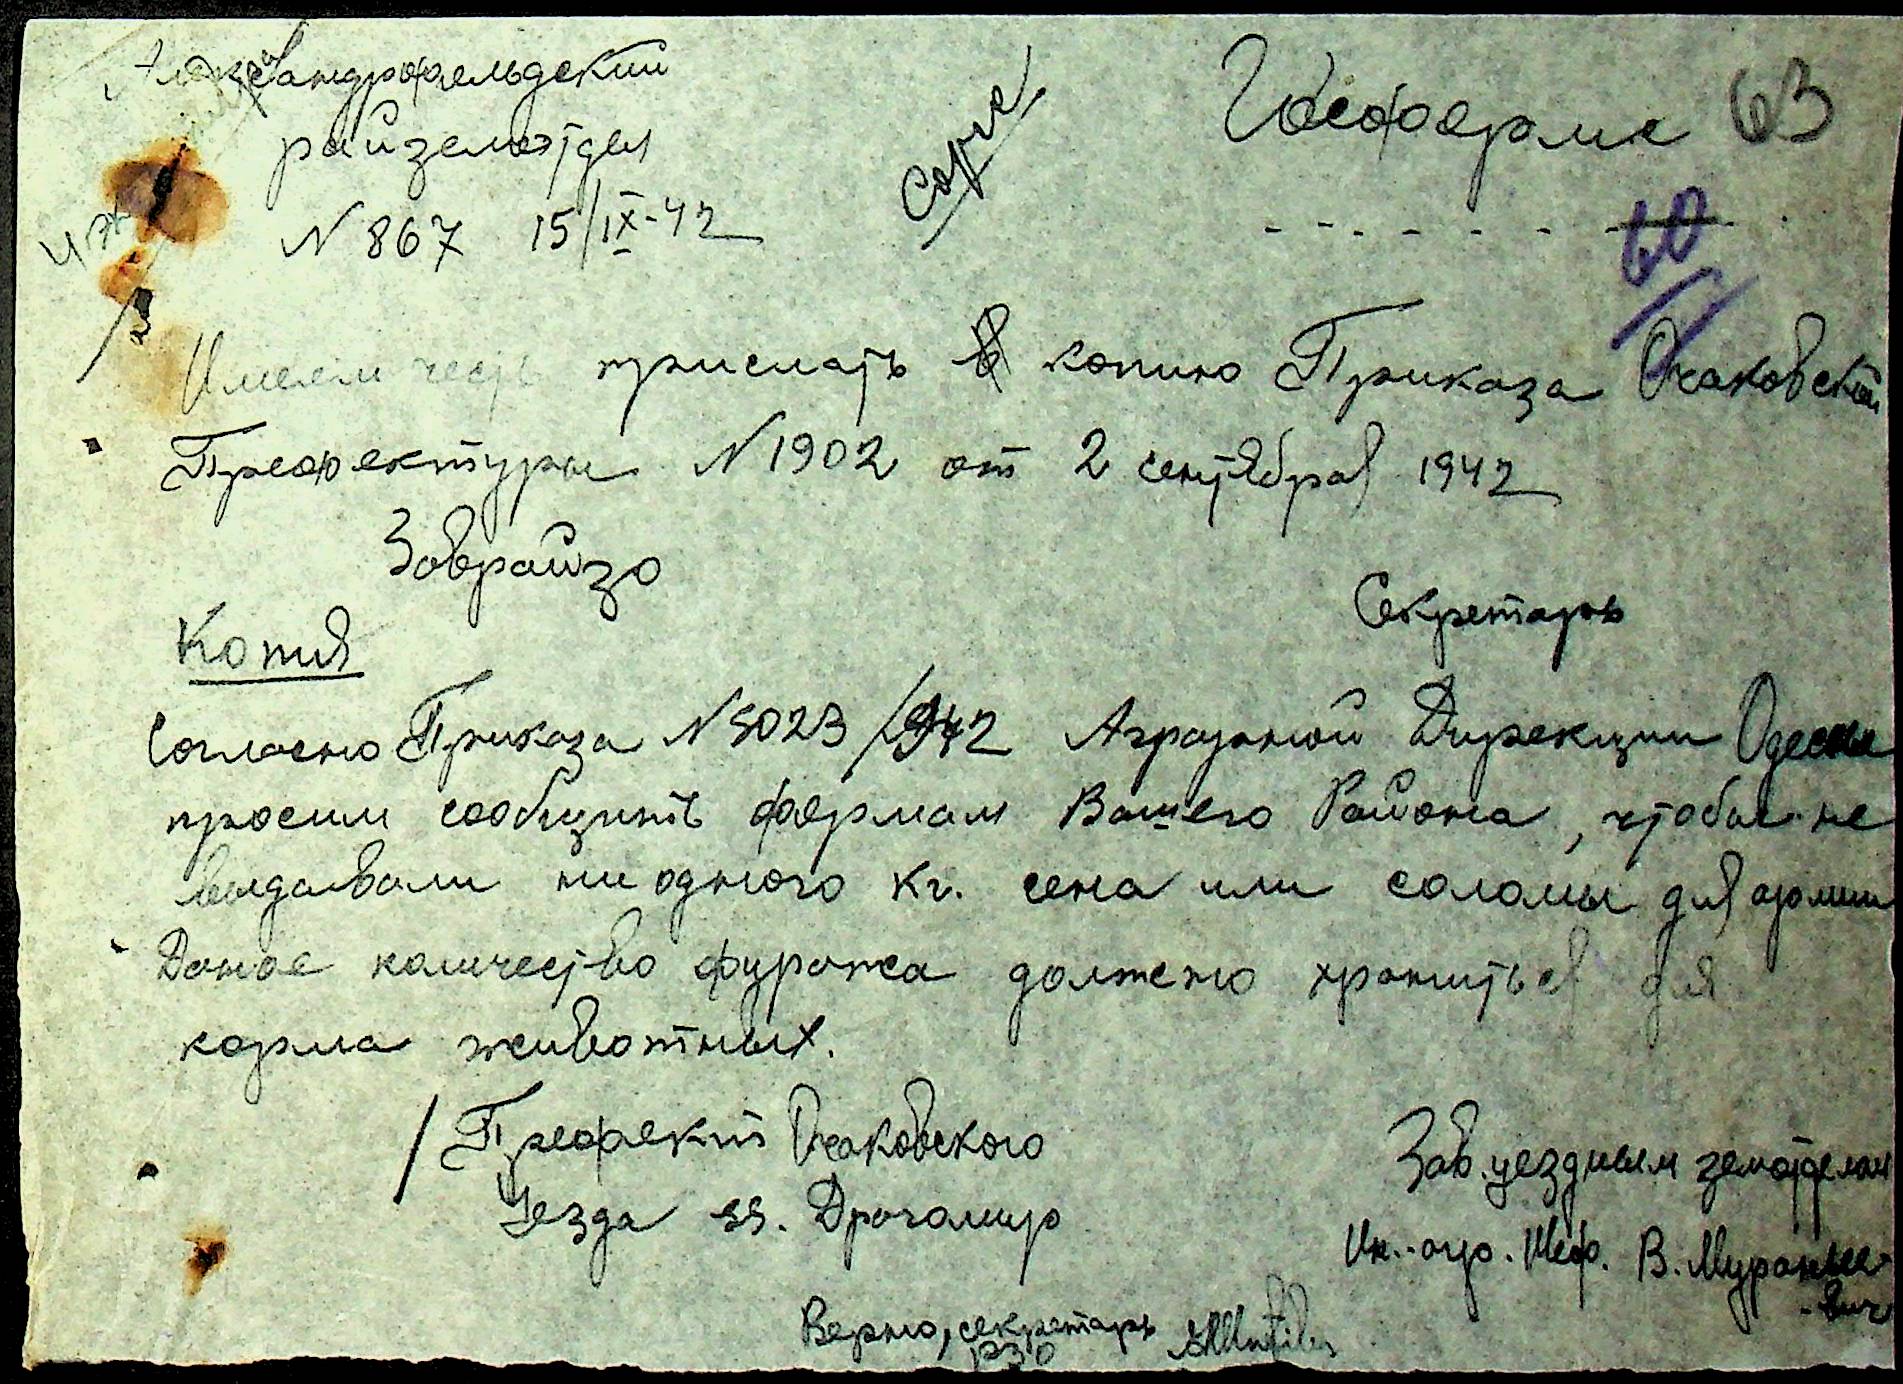 Александрфельдский
райземотдел
N 867 15/IX-42
Copie
Госферме 63
60
Имеем честь прислать копию Приказа Очаковской
Префектуры N 1902 от 2 сентября 1942
Заврайзо
Секретарь
Копия
Согласно Приказа N 5023/942 Аграрной Дирекции Одессы
просим сообщить фермам Вашего Района, чтобы не
выдавали ни одного кг. сена или соломы для армии
Даное количество фуража должно храниться для
корма животных.
/Префект Очаковского
Уезда ss. Драгомир
Зав. уездным земотделом
Ин.-агр. Шеф. В. Муранье-
-вич
Верно, секретарь
РЗО